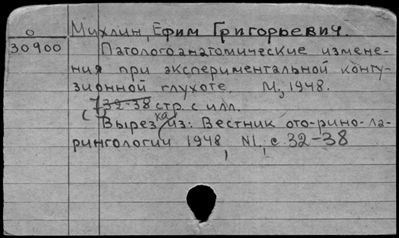 О
30900
Михлин, Ефим Григорьевич.
Патологоанатомические измене-
ния при экспериментальной конту-
зионной глухоте. М, 1948.
( 32-38 стр. с илл.
Вырезка из: Вестник ото-рино-ла-
рингологии 1948 N1, с 32-38